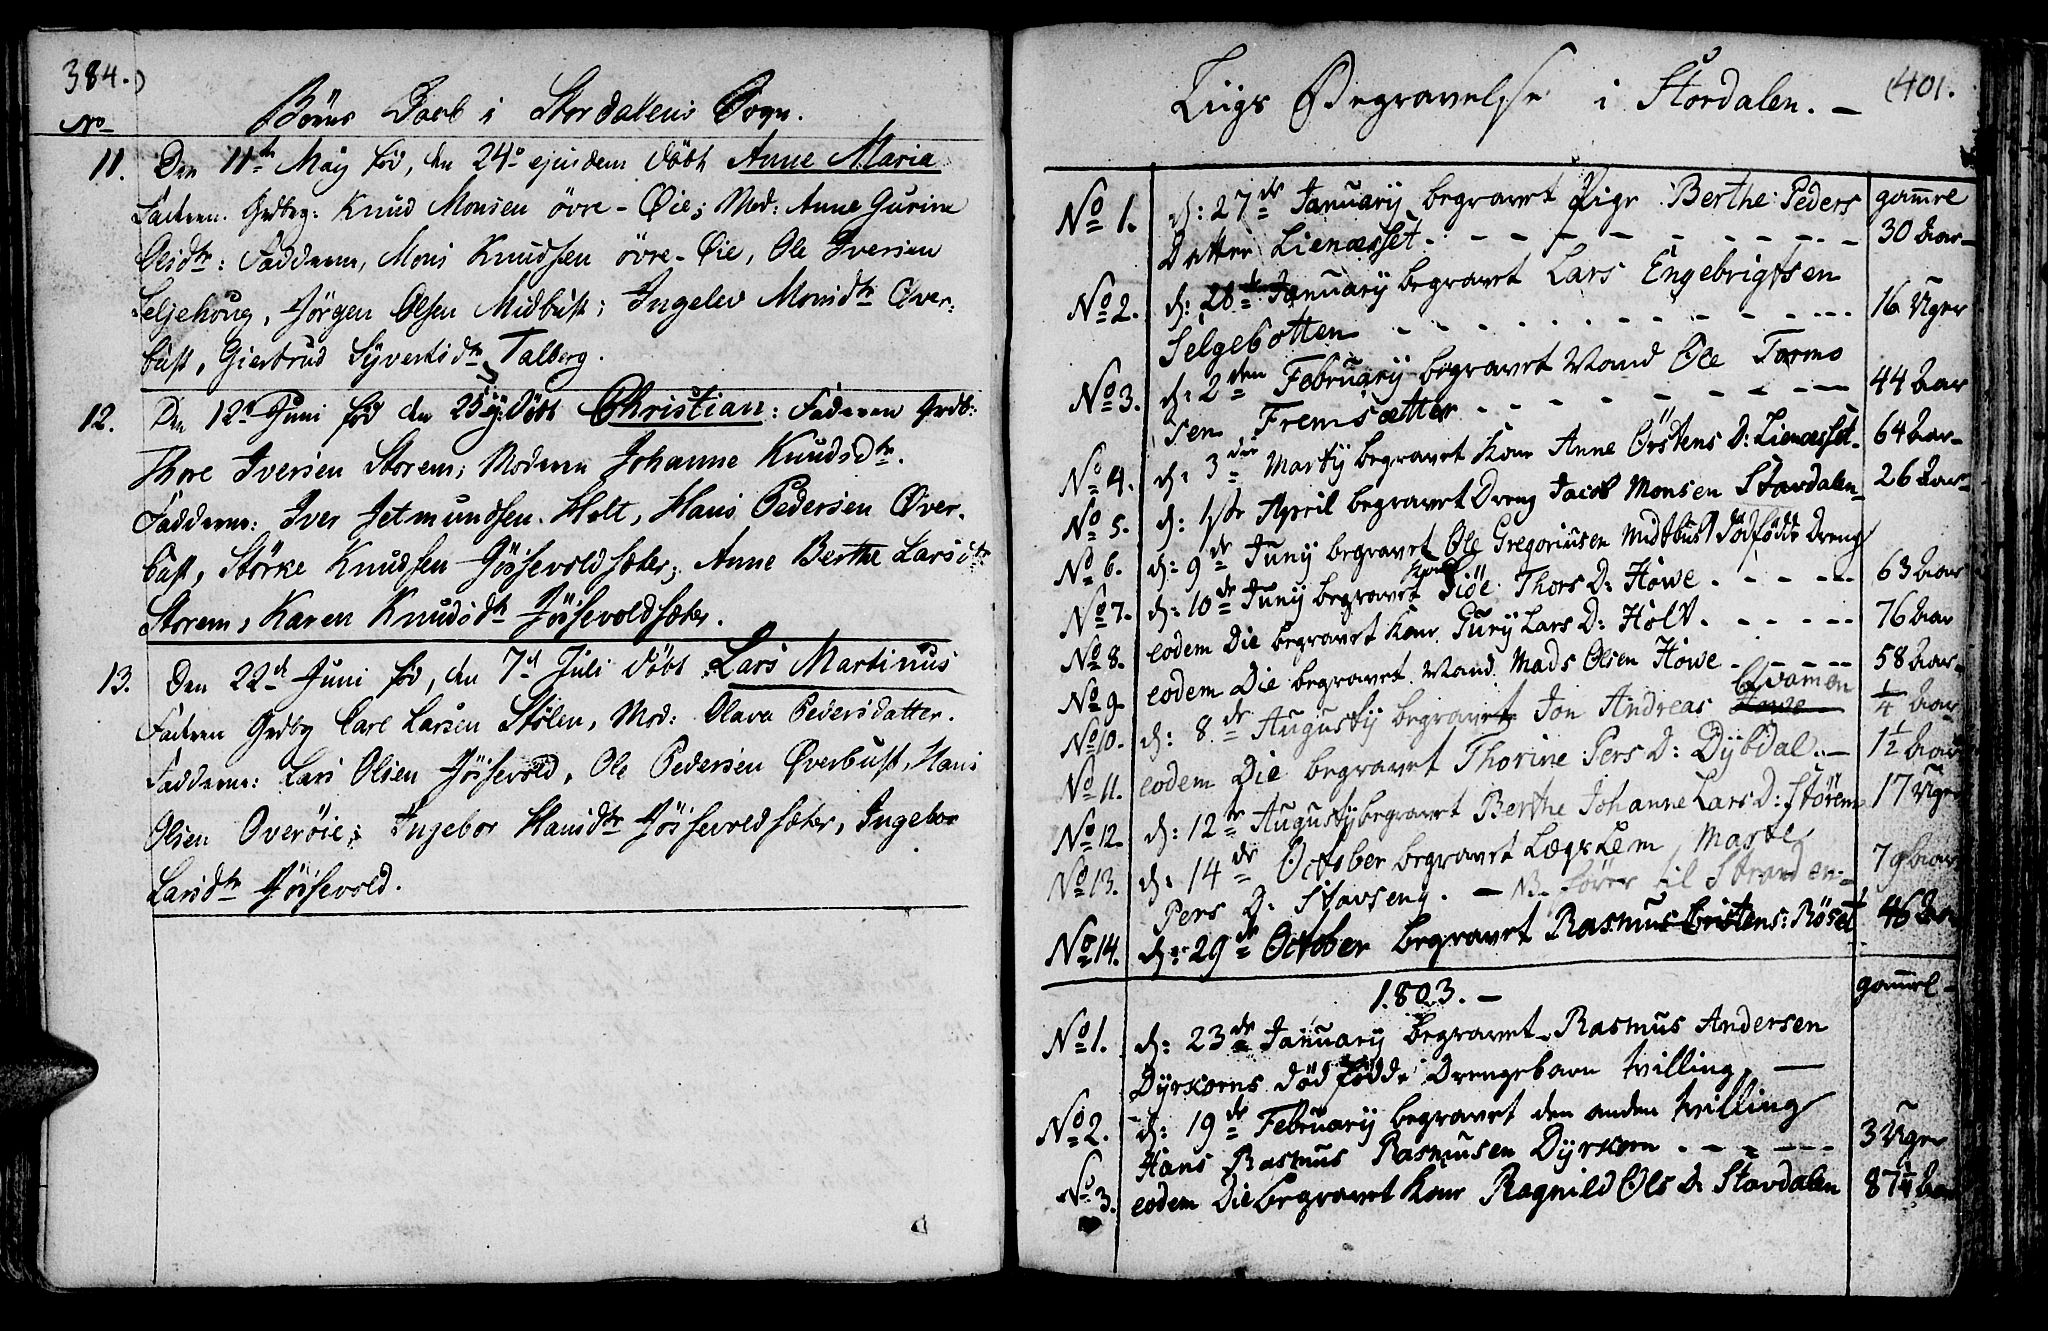 384.)
No
Børns Daab i Stordalens Sogn.
11. Den 11te Maij fød, den 24de ejusdem døbt Anne Maria
Faderen. Grdbrg: Knud Monsen øvre-Øie; Mod: Anne Gurine
Olsdtr: Faddern, Mons Knudsen øvre-Øie, Ole Iversen
Seljehoug, Jørgen Olsen Midbust; Ingelev Monsdtr Øver-
bust, Giertrud Syvertsdtr Talberg.
12. Den 12te Juni fød den døbt Christian: Faderen Grdb:
Thore Iversen Storem; Moderen Johanne Knudsdtr.
Fadderne: Iver Jetmundsen Holt, Hans Pedersen Øver-
bust, Størke Knudsen Jøssevoldsæter; Anne Berthe Larsdtr
Storem, Karen Knudsdtr Jøssevoldsæter.
13. Den 22de Juni fød, den 7de Juli døbt Lars Martinus
Faderen Grdbg Carl Larsen Stølen, Mod: Olava Pedersdatter.
Fadderne: Lars Olsen Jøssevold, Ole Pedersen Øverbust, Hans
Olsen Overøie; Ingebor Hansdtr Jøssevoldsæter, Ingebor
Larsdtr Jøssevold.
(401.
Liigs Begravelse i Stordalen. —
No 1. d: 27de January begravet Pige Berthe Peders gamel
Datter Lienæsset. - - - - - - - - - - 30 Aar-
No 2. d: 28de January begravet Lars Engebrigtsen
Selgebotten - - - - - - - - - - 16 Uger
No 3. d: 2den February begravet Mand Ole Tormo
sen Fremsætter - - - - - - - - 44 Aar
No 4. d: 3die Marty begravet Kone Anne Örstens D: Lienæsset. 64 Aar-
No 5. d: 1ste April begravet Dreng Jacob Monsen Stordalen- 26 Aar-
No 6. d: 9de Juny begravet Ole Gregoriusen Midtbust dødfødde Dreng
No 7. d: 10de Juny begravet Kone Siöe Thors D: Howe. - - - - 63 Aar
No 8. eodem Die begravet Kone Gurÿ Lars D: Holt. - - - - 76 Aar
No 9 eodem Die begravet Mand Mads Olsen Howe - - - - 58 Aar-
No 10. d: 8de Augusty begravet Jon Andreas Howe Qvamen 1/4 Aar
No 11. eodem Die begravet Thorine Pers D: Dÿbdal. — 1 1/2 Aar
No 12. d: 12te Augusty begravet Berthe Johanne Lars D: Störem 17 Uger
No 13. d: 14de October begravet Lægslem Marte
Pers D. Stavseng. — NB. hörer til Stranden- 79 Aar
No 14. d: 29de October begravet Rasmus Cristens: Röset 46 Aar
1803. — gamel-
No 1. d: 23de January begravet Rasmus Andersen
Dyrkorns dødfødde Drengebarn tvilling. —
No 2. d: 19de February begravet den anden tvilling
Hans Rasmus Rasmusen Dyrkorn - - - - - 3 Uger
No 3. eodem Die begravet Kone Ragnild Ols D: Stordalen 87 1/4 Aar